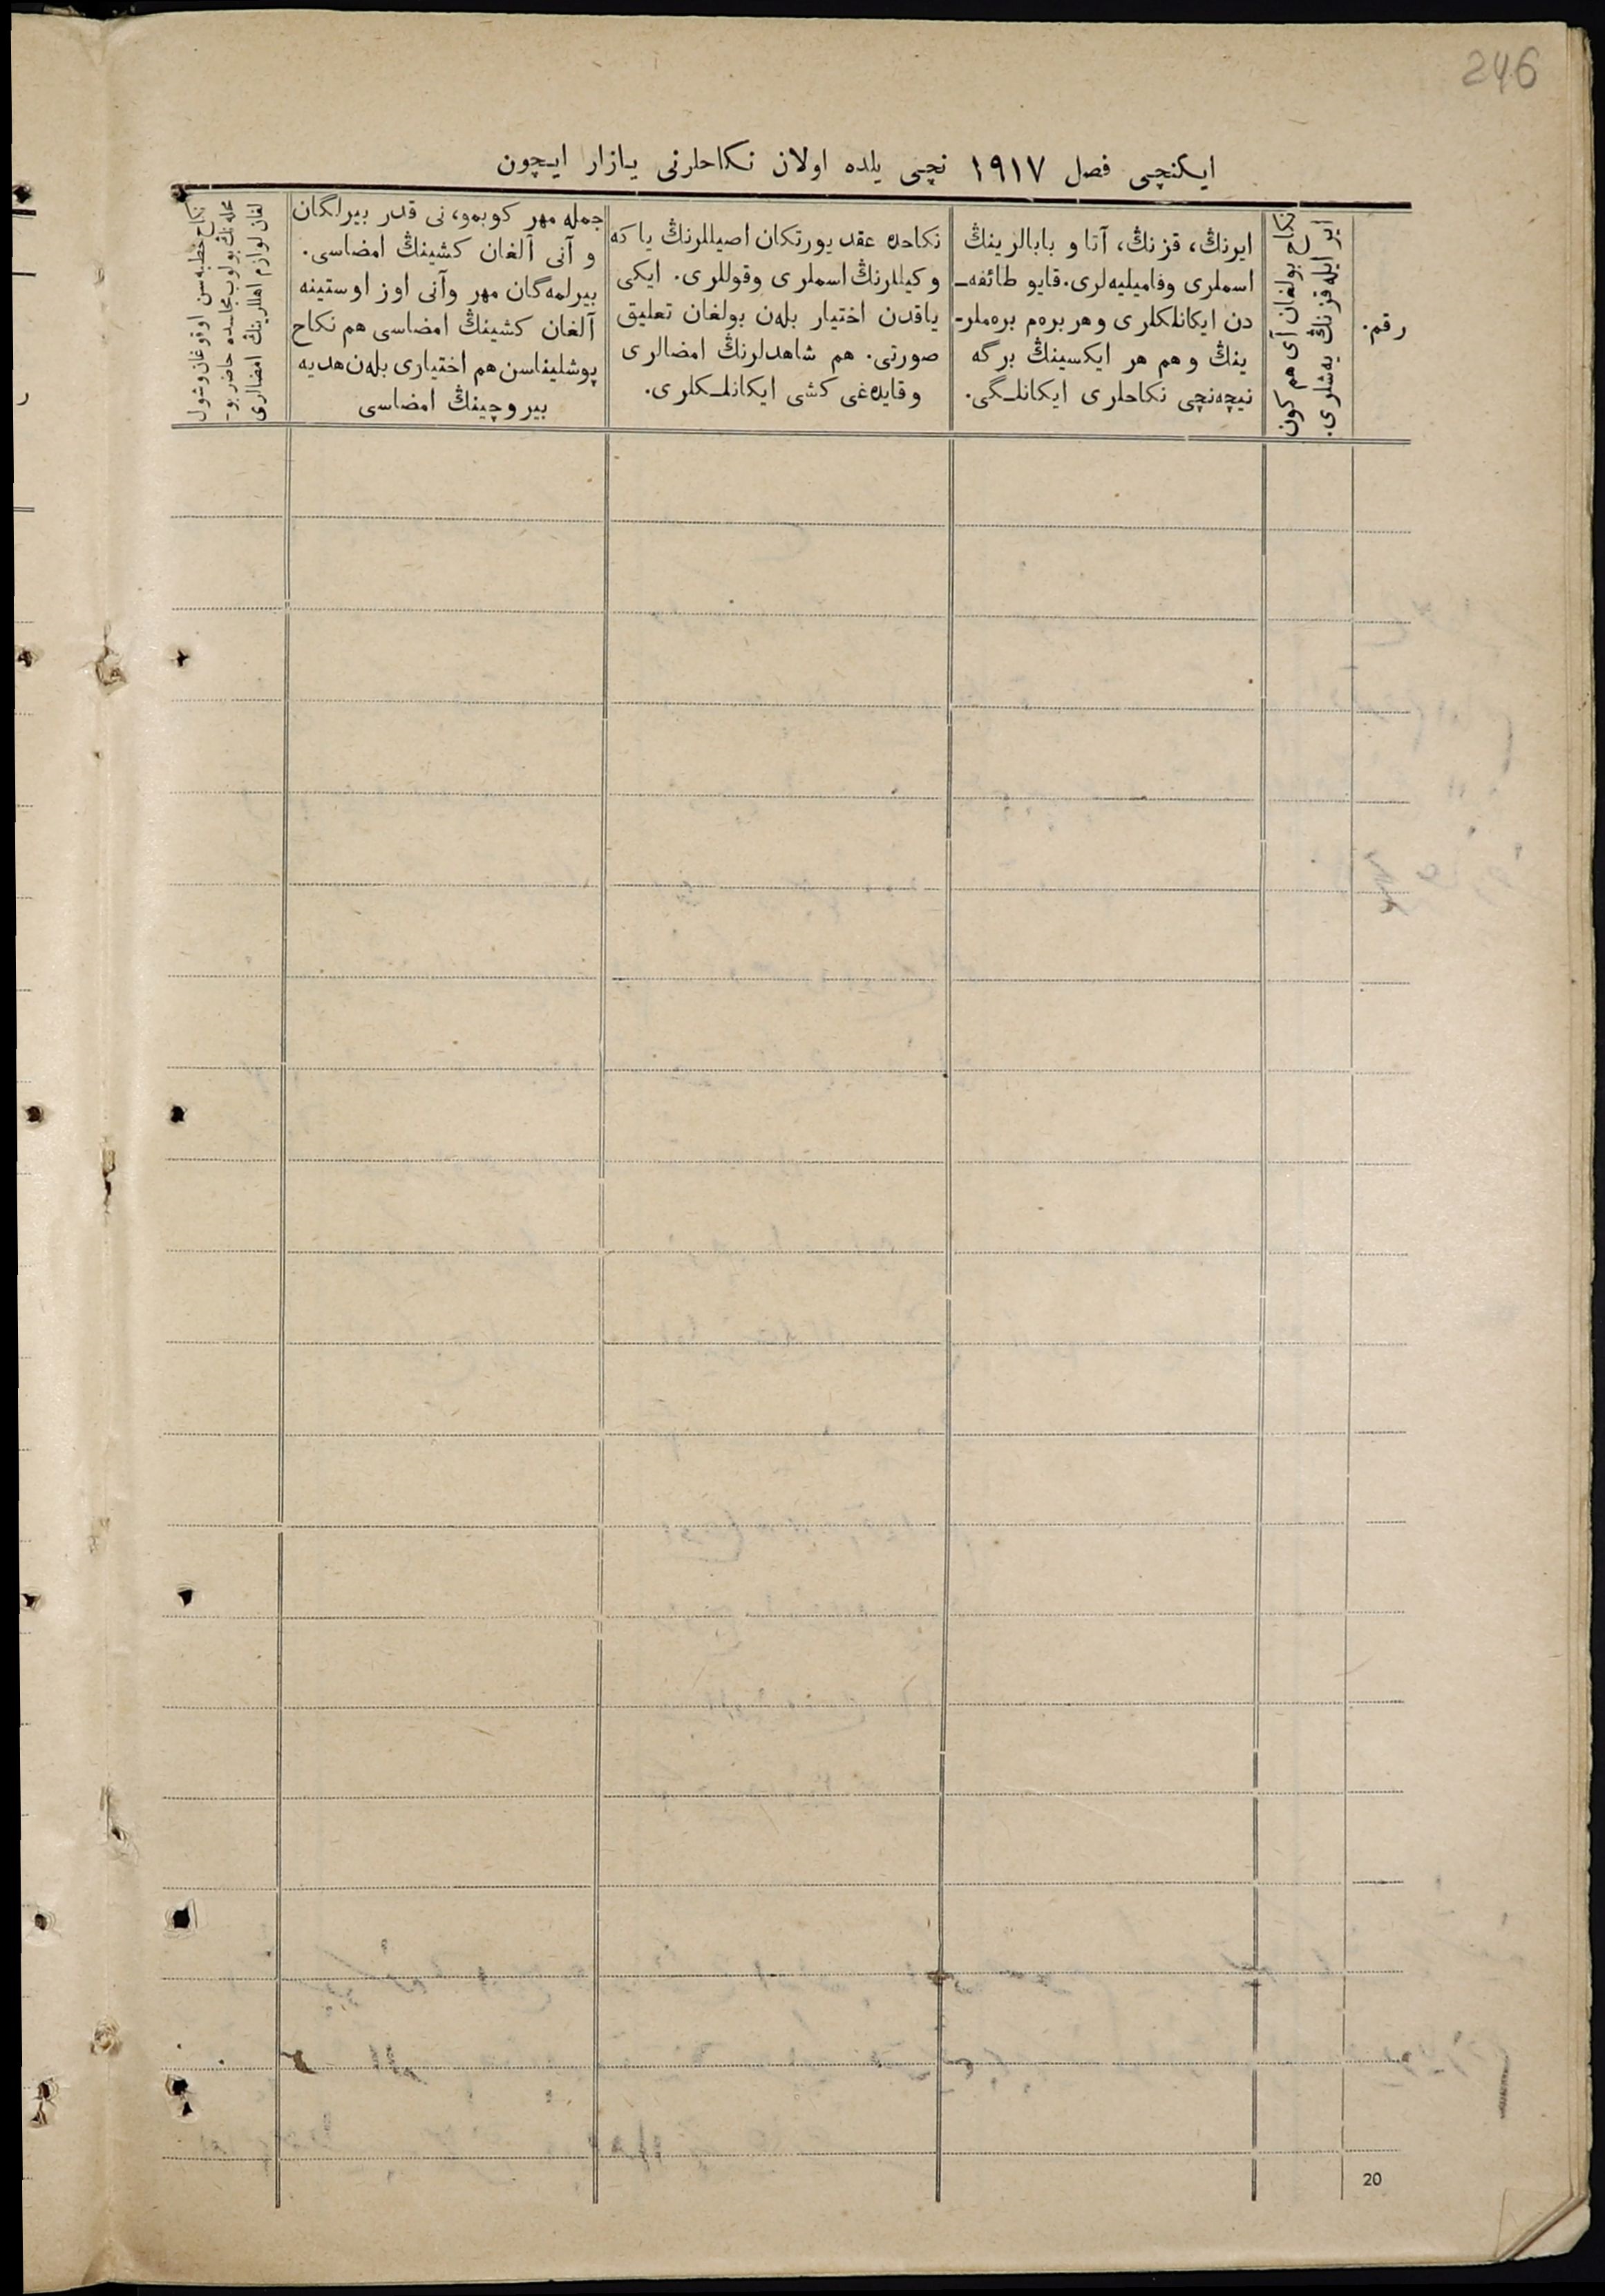 246
ایکنچی فصل ١٩١٧ نچی یلده اولان نکاحلرنی یازار ایچون
رقم.
نکاح بولغان آی هم کون
ایر ایله قزنڭ یەشلری.
ایرنڭ، قزنڭ، آتا و بابالرینڭ
اسملری وفامیلیەلری. قایو طائفه‌ـ
دن ایکانلکلری وهر برەم برەملر‌ـ
ینڭ وهم هر ایکسینڭ برگه
نیچەنچی نکاحلری ایکانلـگی.
نکاحده عقد یورتکان اصیللرنڭ یا که
وکیللرنڭ اسملری وقوللری. ایکی
یاقدن اختیار بلەن بولغان تعلیق
صورتی. هم شاهدلرنڭ امضالری
وقایدەغی کشی ایکانلـکلری.
جمله مهر کوبمو، نی قدر بیرلگان
و آنی آلغان کشینڭ امضاسی.
بیرلمەگان مهر وآنی اوز اوستینه
آلغان کشینڭ امضاسی هم نکاح
پوشلیناسن هم اختیاری بلەن هدیه
بیروچینڭ امضاسی
نکاح خطبه‌سن اوقوغان وشول
محله‌نڭ بولوب مجلسده حاضر بو‌ـ
لغان لوازم اهللرینڭ امضالری
20